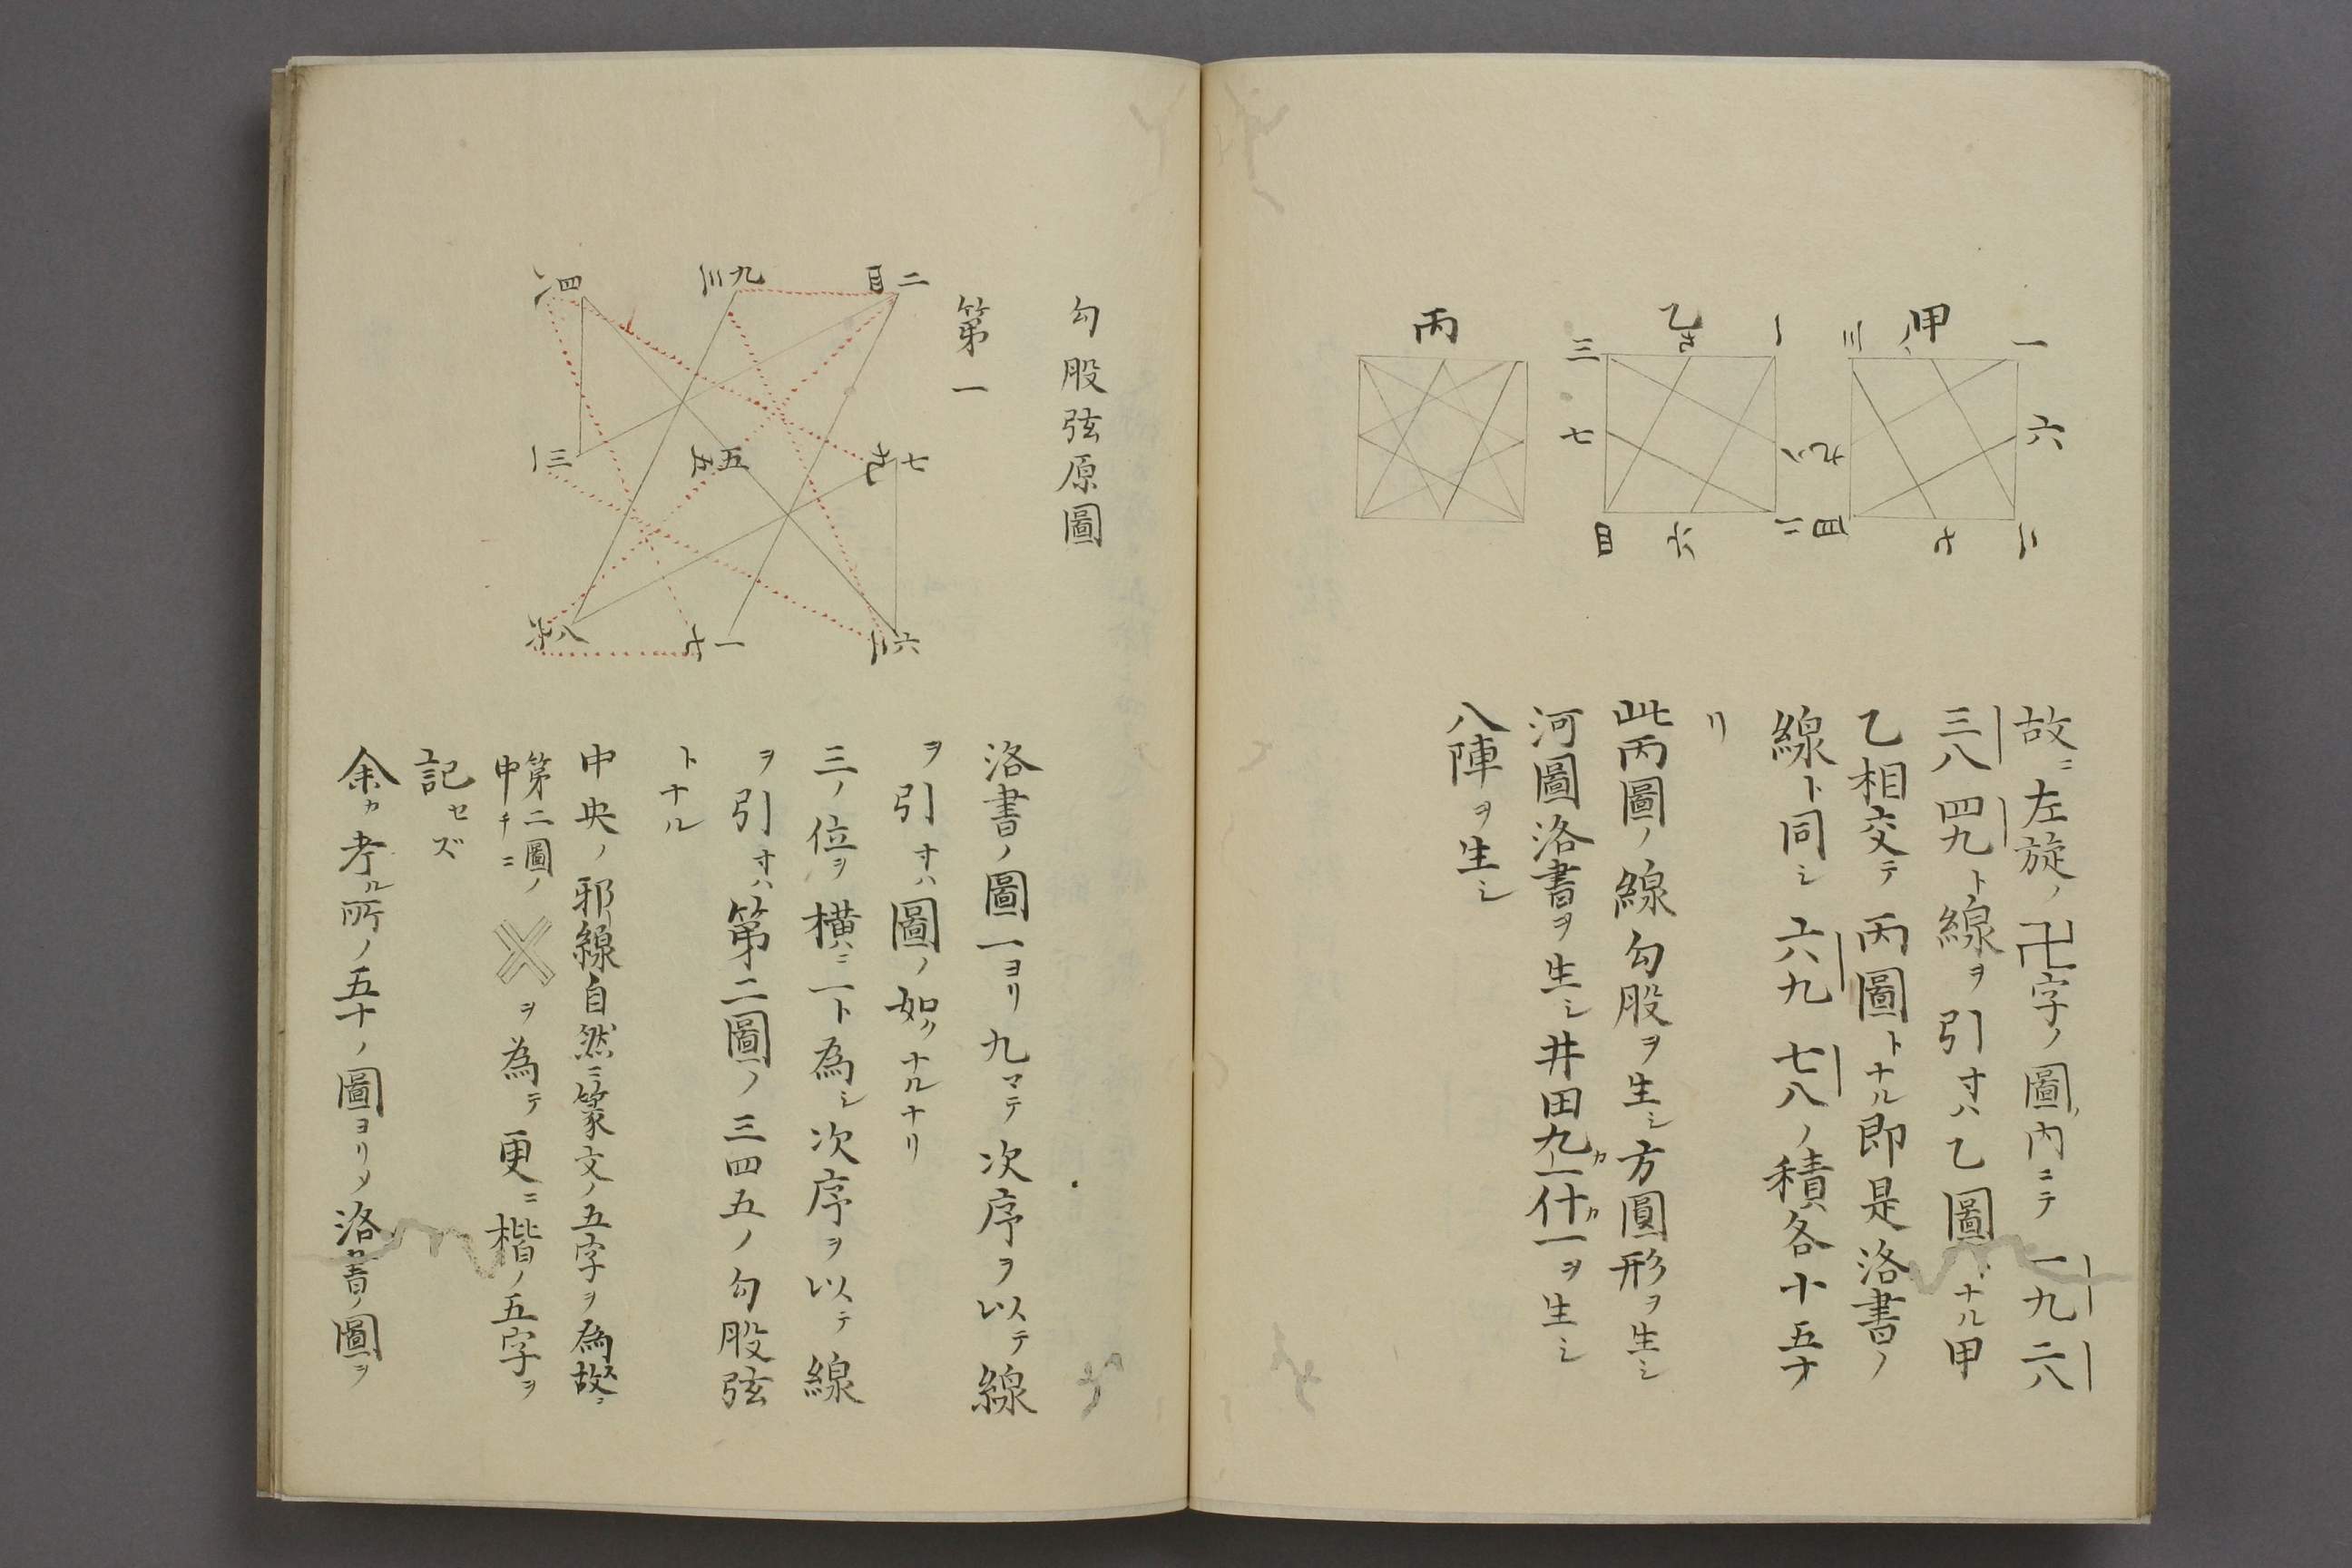 甲
一
六
二
七
四
九
三
八
乙
一
八
二
六
四
七
三
九
丙
故ニ左旋ノ卍字ノ圖ノ内ニテ一九二八
三八四九ト線ヲ引すハ乙圖トナル甲
乙相交テ丙圖トナル即是洛書ノ
線ト同シ六九七八ノ積各十五ナ
リ
此丙圖ノ線勾股ヲ生シ方圓形ヲ生シ
河圖洛書ヲ生シ井田九一什一ヲ生シ
八陣ヲ生シ
勾股弦原圖
第一
二四
九三
四八
七九
五五
三一
六二
一七
八六
洛書ノ圖一ヨリ九マテ次序ヲ以テ線
ヲ引すハ圖ノ如クナルナリ
三ノ位ヲ横ニ一ト為シ次序ヲ以テ線
ヲ引すハ第二圖ノ三四五ノ勾股弦
トナル
中央ノ邪線自然ニ篆文ノ五字ヲ為ス故ニ
第二圖ノ
中チニ
ヲ為テ更ニ楷ノ五字ヲ
記セズ
余カ考ル所ノ五十ノ圖ヨリノ洛書ノ圖ヲ